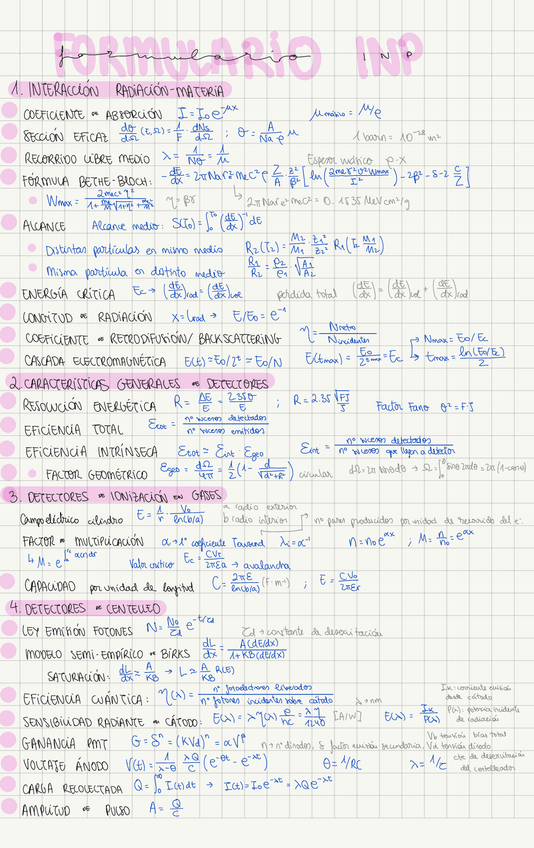 FORMULARIO INP
formulario INP
1. INTERACCIÓN RADIACIÓN-MATERIA
COEFICIENTE DE ABSORCIÓN I = I₀ e^-μx μ másico = μ/ρ
SECCIÓN EFICAZ dσ/dΩ (E,Ω) = 1/F · dNs/dΩ ; σ = A/(Na ρ) μ 1 barn = 10^-28 m²
RECORRIDO LIBRE MEDIO λ = 1/Nσ = 1/μ Espesor másico ρ·x
FÓRMULA BETHE-BLOCH: -dE/dx = 2πNa r² me c² ρ Z/A z²/β² [ln(2me γ² v² Wmax / I²) - 2β² - δ - 2 C/Z]
Wmax = 2mec² η² / η = βγ 2πNa re² mec² = 0.1535 MeV cm²/g
ALCANCE Alcance medio: S(T₀) = ∫₀^T₀ (dE/dx)^-1 dE
Distintas partículas en mismo medio R₂(T₂) = M₂/M₁ · z₁²/z₂² R₁(T₂ M₁/M₂)
Misma partícula en distinto medio R₁/R₂ = ρ₂/ρ₁ √(A₁/A₂)
ENERGÍA CRÍTICA Ec → (dE/dx)rad = (dE/dx)col pérdida total (dE/dx) = (dE/dx)col + (dE/dx)rad
LONGITUD DE RADIACIÓN x = Lrad → E/E₀ = e^-1
COEFICIENTE DE RETRODIFUSIÓN/BACKSCATTERING η = Nretro/Nincidentes → Nmax = E₀/Ec
CASCADA ELECTROMAGNÉTICA E(t) = E₀/2^t = E₀/N E(tmax) = E₀/2^tmax = Ec → tmax = ln(E₀/Ec)/2
2. CARACTERÍSTICAS GENERALES DE DETECTORES
RESOLUCIÓN ENERGÉTICA R = ΔE/E = 2.35σ/E ; R = 2.35 √FJ/J Factor Fano σ² = FJ
EFICIENCIA TOTAL Etot = nº sucesos detectados / nº sucesos emitidos
EFICIENCIA INTRÍNSECA Etot = Eint · Egeo Eint = nº sucesos detectados / nº sucesos que llegan a detector
FACTOR GEOMÉTRICO Egeo = dΩ/4π = 1/2 (1 - d/√(d²+R²)) circular dΩ = 2π sinθdθ → Ω = ∫₀^θ sinθ 2πdθ = 2π(1-cosθ)
3. DETECTORES DE IONIZACIÓN EN GASES
Campo eléctrico cilindro E = 1/r · V₀/ln(b/a) a radio exterior
b radio interior nº pares producidos por unidad de recorrido del e⁻
FACTOR DE MULTIPLICACIÓN α → 1º coeficiente Townsend λi = α^-1 n = n₀e^αx ; M = n/n₀ = e^αx
↳ M = e^∫α(x)dx Valor crítico Ec = CVt/2πEa → avalancha
CAPACIDAD por unidad de longitud C = 2πE/ln(b/a) (F·m^-1) ; E = CV₀/2πEr
4. DETECTORES DE CENTELLEO
LEY EMISIÓN FOTONES N = N₀/τd e^-t/τd τd → constante de desexcitación
MODELO SEMI-EMPÍRICO DE BIRKS dL/dx = A(dE/dx)/1+KB(dE/dx)
SATURACIÓN: dL/dx ≃ A/KB → L ≃ A/KB R(E)
EFICIENCIA CUÁNTICA: η(λ) = nº fotoelectrones liberados / nº fotones incidentes sobre cátodo λ → nm
SENSIBILIDAD RADIANTE DE CÁTODO: E(λ) = λη(λ) e/hc = λη/1240 [A/W] E(λ) = Ik/P(λ)
Ik: corriente emisión desde cátodo
P(λ): potencia incidente de radiación
GANANCIA PMT G = δ^n = (KVd)^n = αV^β n = nº dínodos, δ factor emisión secundaria
Vb tensión total
Vd tensión dínodo
VOLTAJE ÁNODO V(t) = 1/λ-θ · λQ/C (e^-θt - e^-λt) θ = 1/RC λ = 1/τ cte de desexcitación del centelleador
CARGA RECOLECTADA Q = ∫₀^∞ I(t)dt → I(t) = I₀e^-λt = λQe^-λt
AMPLITUD DE PULSO A = Q/C